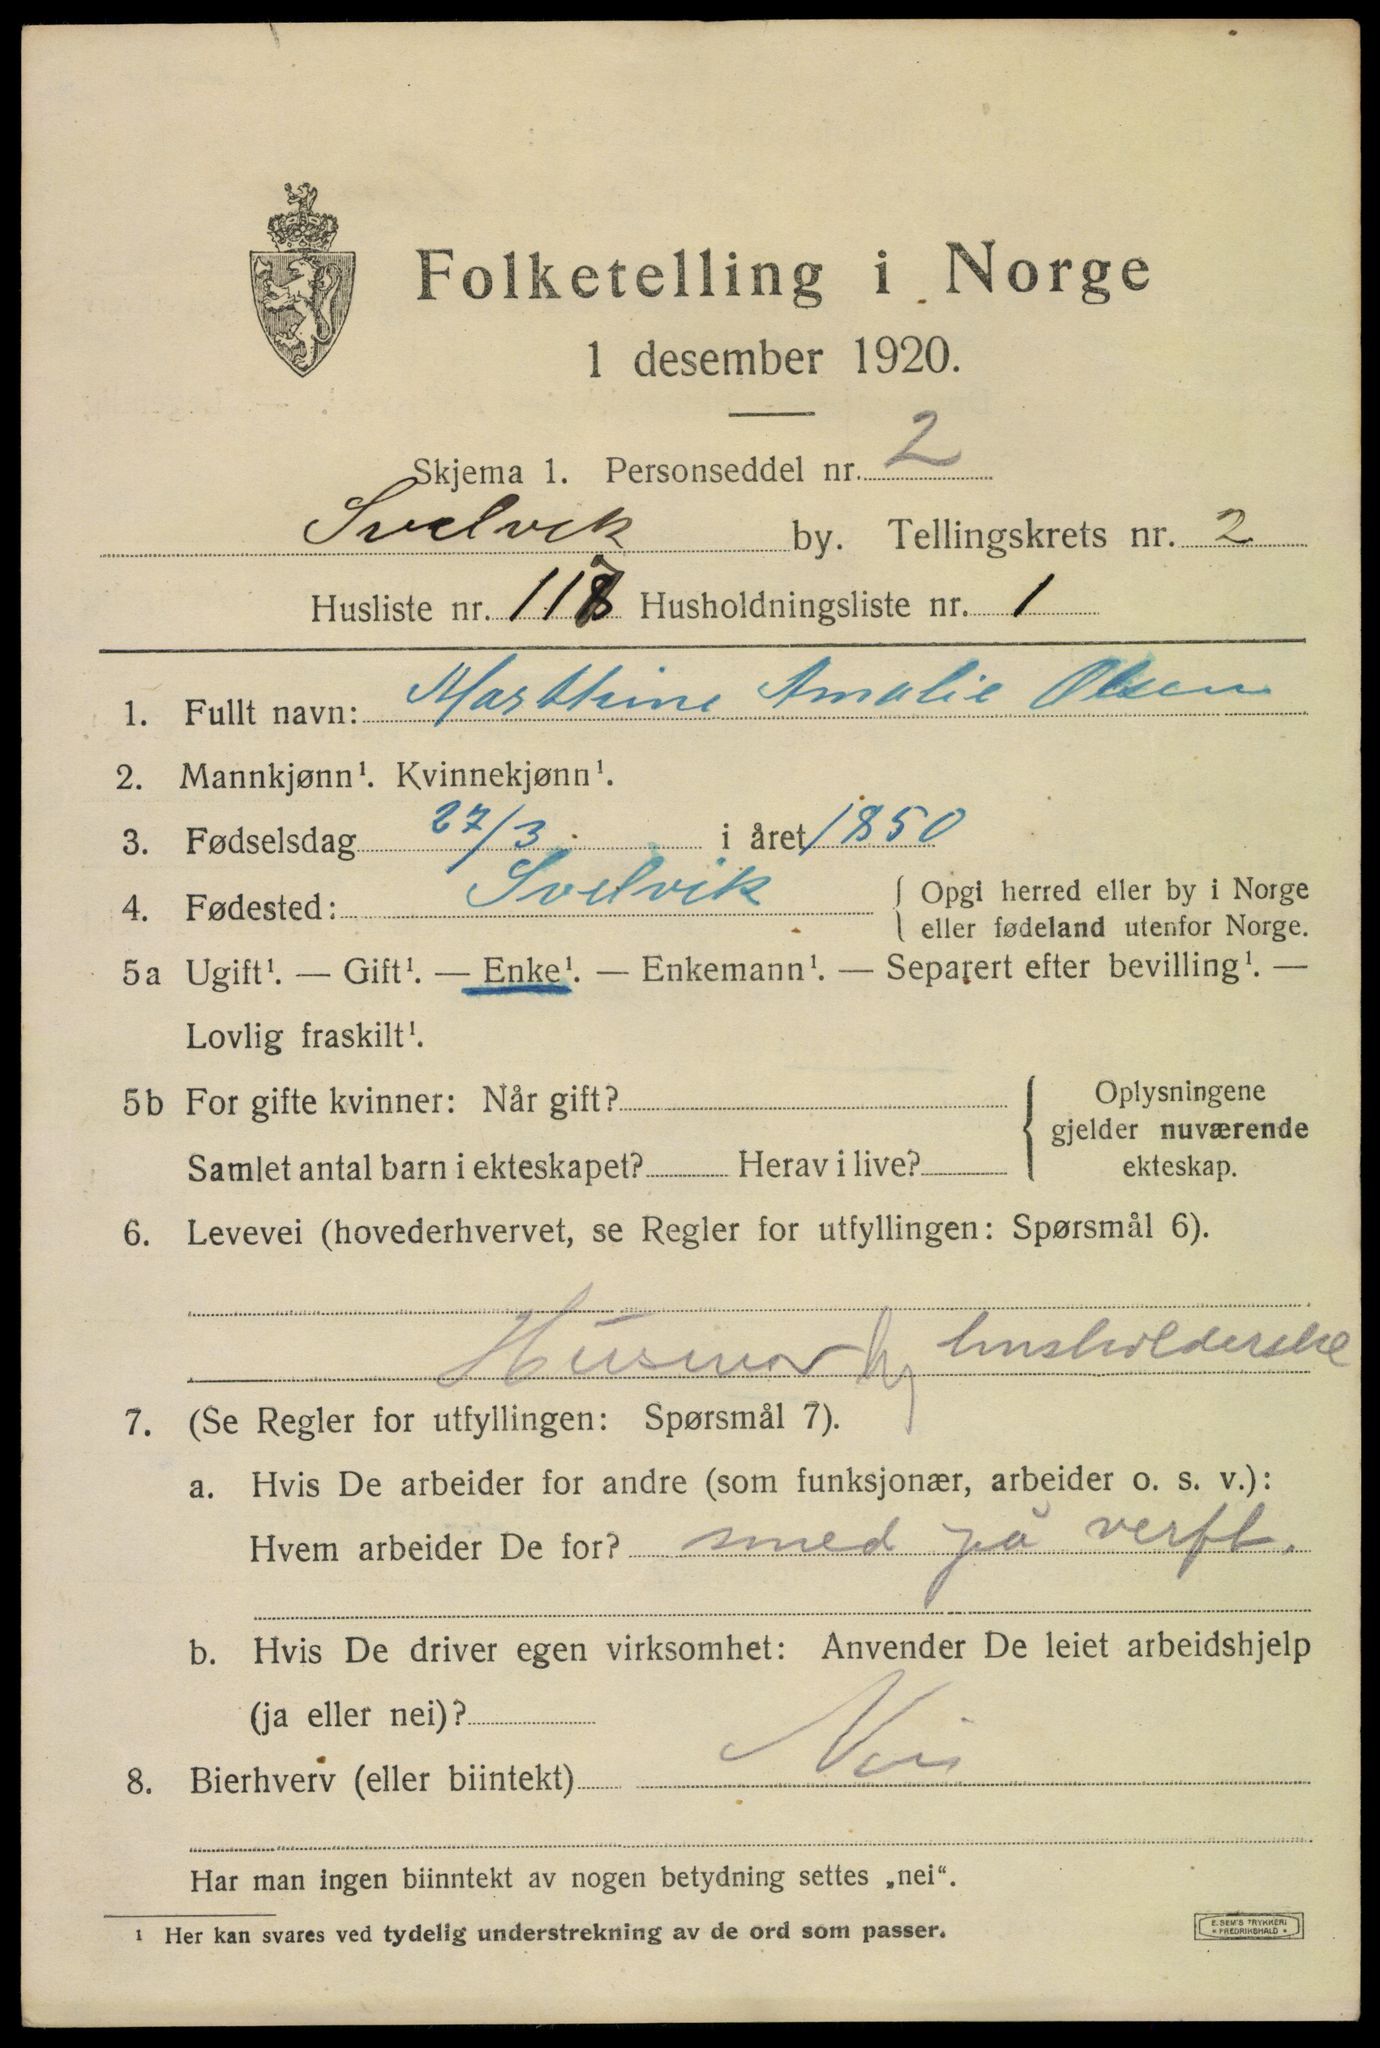 Folketelling i Norge
1 desember 1920.
Skjema 1. Personseddel nr. 2
Svelvik by. Tellingskrets nr. 2
Husliste nr. 117 Husholdningsliste nr. 1
1. Fullt navn: Marthine Amalie Olsen
2. Mannkjønn¹. Kvinnekjønn¹.
3. Fødselsdag 27/3 i året 1850
4. Fødested: Svelvik { Opgi herred eller by i Norge
eller fødeland utenfor Norge.
5a Ugift¹. — Gift¹. — Enke¹. — Enkemann¹. — Separert efter bevilling¹. —
Lovlig fraskilt¹.
5b For gifte kvinner: Når gift? { Oplysningene
gjelder nuværende
Samlet antal barn i ekteskapet? Herav i live? ekteskap.
6. Levevei (hovederhvervet, se Regler for utfyllingen: Spørsmål 6).
Husmor husholderske
7. (Se Regler for utfyllingen: Spørsmål 7).
a. Hvis De arbeider for andre (som funksjonær, arbeider o. s. v.):
Hvem arbeider De for? smed på verft.
b. Hvis De driver egen virksomhet: Anvender De leiet arbeidshjelp
(ja eller nei)?
8. Bierhverv (eller biintekt) Nei
Har man ingen biinntekt av nogen betydning settes „nei“.
¹ Her kan svares ved tydelig understrekning av de ord som passer.
E. SEM'S TRYKKERI
* FREDRIKSHALD *